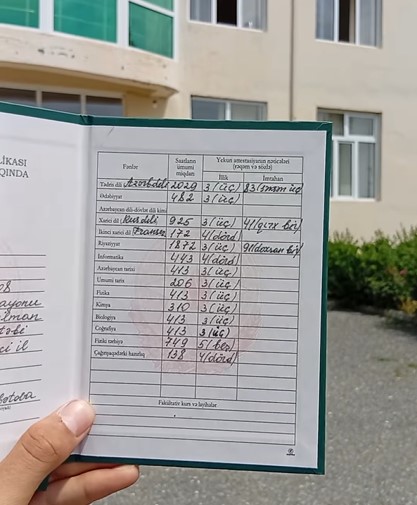 LİKASI
QINDA
Fənlər
Saatların ümumi miqdarı
Yekun attestasiyanın nəticələri (rəqəm və sözlə)
İllik
İmtahan
Tədris dili Azərb.dili 2029 3 (üç)
Ədəbiyyat 482 3 (üç)
Azərbaycan dili-dövlət dili kimi
Xarici dil Rus dili 925 3 (üç) 41 (qırx bir)
İkinci xarici dil Fransız 172 4 (dörd)
Riyaziyyat 1872 3 (üç) 91 (doxsan bir)
İnformatika 443 4 (dörd)
Azərbaycan tarixi 413 3 (üç)
Ümumi tarix 206 3 (üç)
Fizika 413 3 (üç)
Kimya 310 3 (üç)
Biologiya 413 3 (üç)
Coğrafiya 413 3 (üç)
Fiziki tərbiyə 749 5 (beş)
Çağırışaqədərki hazırlıq 138 4 (dörd)
Fakültativ kurs və layihələr
08
ayonu
təbi
çi il